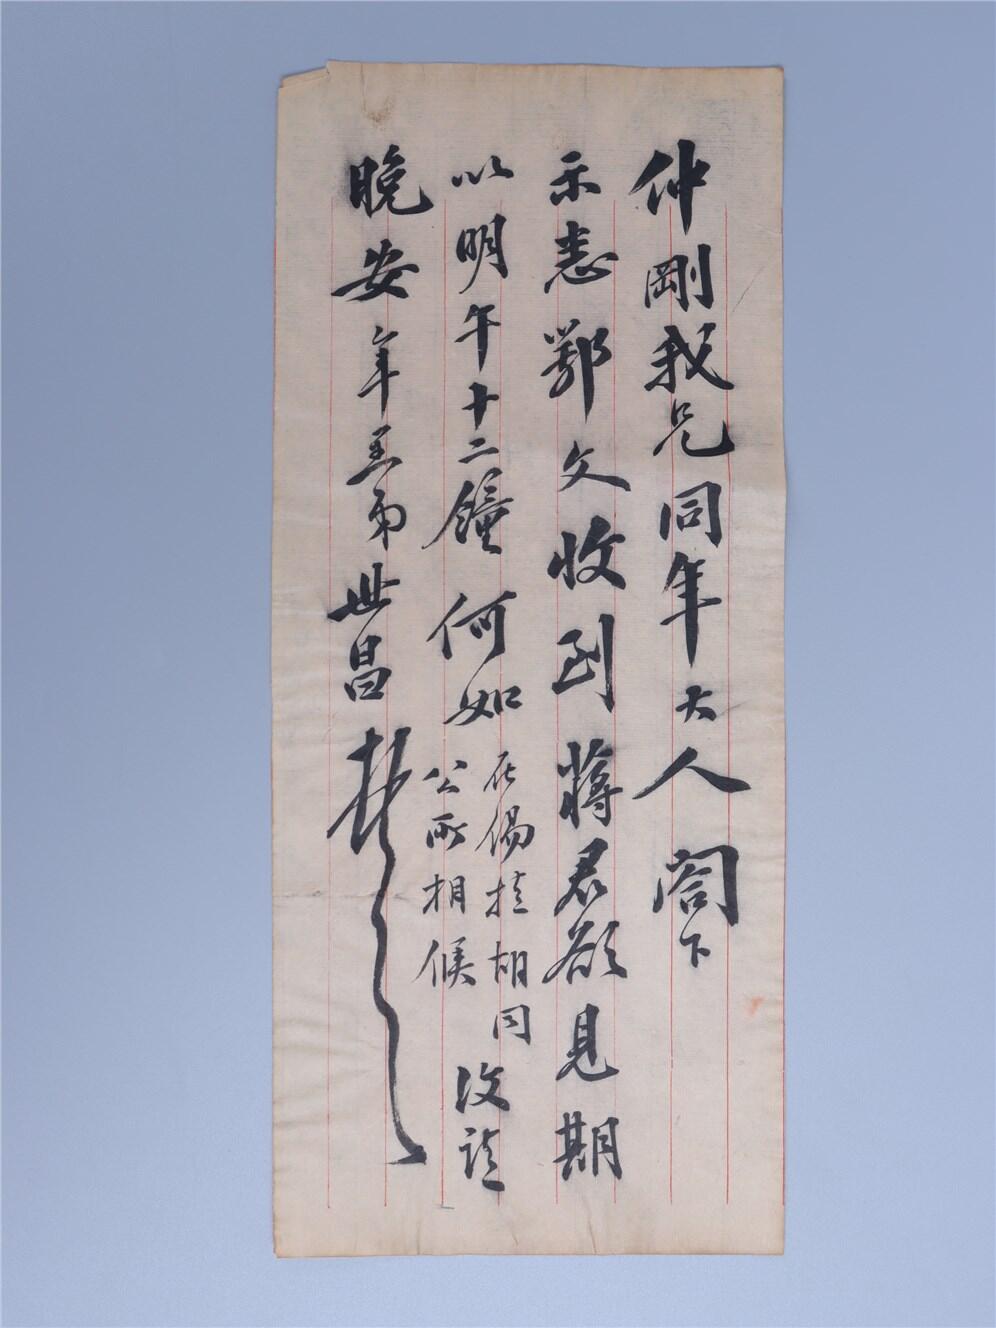 仲剛我兄同年大人閣下
示悉鄂文收到蔣君欲見期
以明午十二鐘何如
在錫拉胡同
公所相候
復請
晚安年 弟世昌